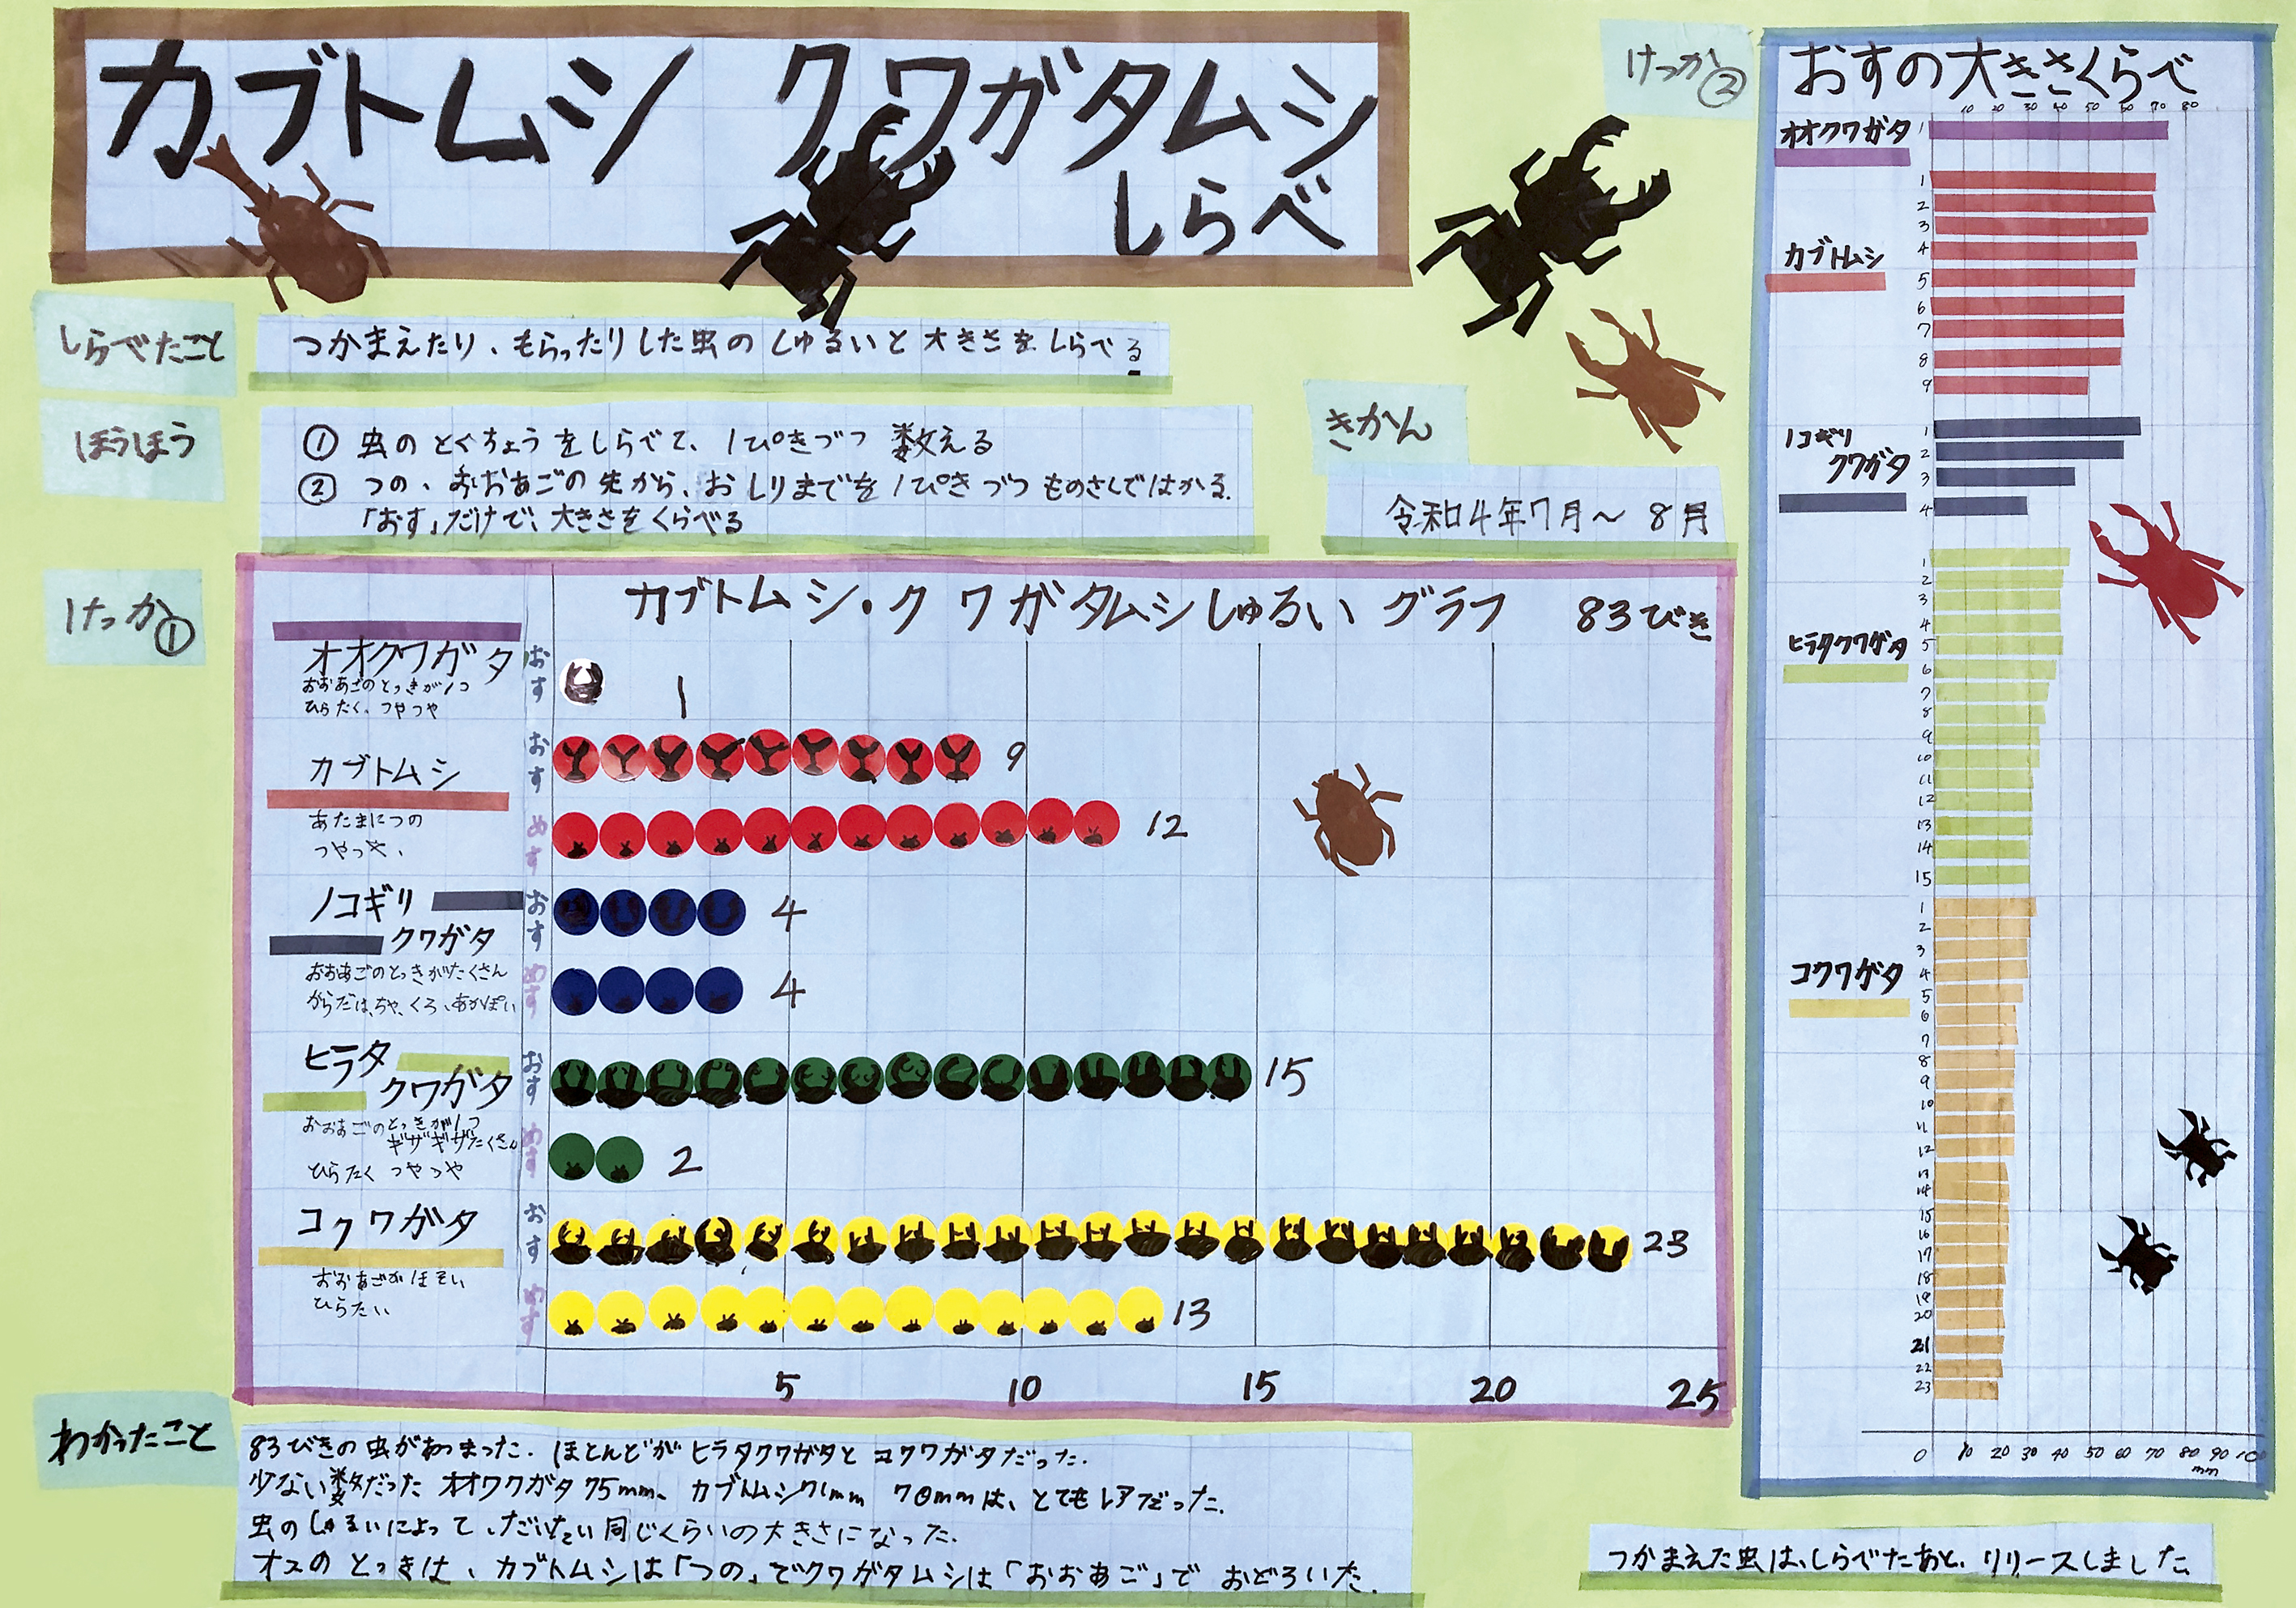 カブトムシ クワガタムシ
しらべ
しらべたこと
つかまえたり、もらったりした虫のしゅるいと大きさをしらべる
ほうほう
① 虫のとくちょうをしらべて、1ぴきづつ 数える
② つの、おおあごの先から、おしりまでを1ぴきづつものさしではかる.
「おす」だけで、大きさをくらべる
きかん
令和4年7月〜8月
けっか①
カブトムシ・クワガタムシしゅるい グラフ 83びき
オオクワガタ
おおあごのとっきが1つ
ひらたく、つやつや
おす
1
カブトムシ
あたまにつの
つやつや、
おす
9
めす
12
ノコギリ
クワガタ
おおあごのとっきがたくさん
からだは、ちゃ、くろ、あかぽい
おす
4
めす
4
ヒラタ
クワガタ
おおあごのとっきが1つ
ギザギザたくさん
ひらたく つやつや
おす
15
めす
2
コクワガタ
おおあごがほそい
ひらたい
おす
23
めす
13
5 10 15 20 25
わかったこと
83びきの虫があつまった. ほとんどがヒラタクワガタとコクワガタだった.
少ない数だった オオワクガタ75mm、カブトムシ71mm 70mmは、とてもレアだった.
虫のしゅるいによって、だいたい同じくらいの大きさになった.
オスのとっきは、カブトムシは「つの」でクワガタムシは「おおあご」で おどろいた.
けっか②
おすの大きさくらべ
10 20 30 40 50 60 70 80
オオクワガタ
1
カブトムシ
1
2
3
4
5
6
7
8
9
ノコギリ
クワガタ
1
2
3
4
ヒラタクワガタ
1
2
3
4
5
6
7
8
9
10
11
12
13
14
15
コクワガタ
1
2
3
4
5
6
7
8
9
10
11
12
13
14
15
16
17
18
19
20
21
22
23
0 10 20 30 40 50 60 70 80 90 100
mm
つかまえた虫は、しらべたあと、リリースしました